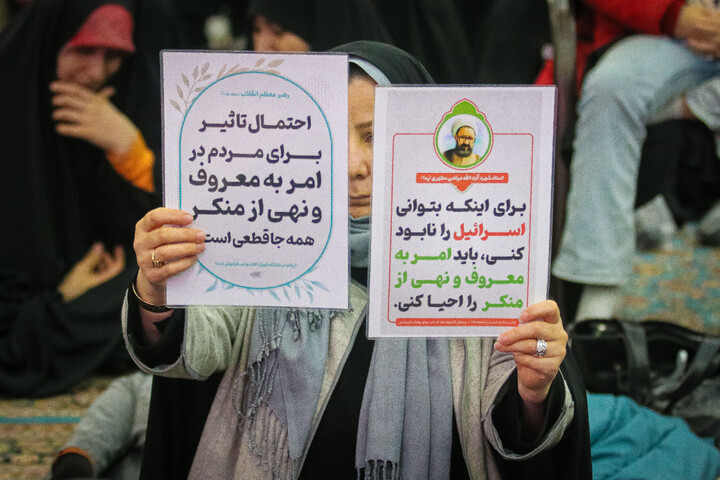 رهبر معظم انقلاب
احتمال تأثیر
برای مردم در
امر به معروف
و نهی از منکر
همه جا قطعی است
استاد شهید آیت الله مرتضی مطهری (ره):
برای اینکه بتوانی
اسرائیل را نابود
کنی، باید امر به
معروف و نهی از
منکر را احیا کنی.